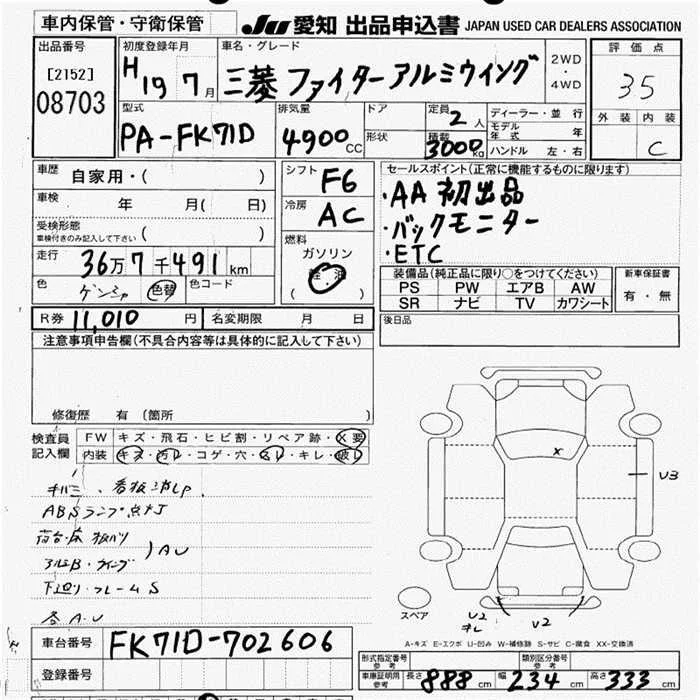 車内保管・守衛保管
JU 愛知 出品申込書 JAPAN USED CAR DEALERS ASSOCIATION
出品番号
[2152]
08703
初度登録年月
H19 7月
車名・グレード
三菱 ファイターアルミウイング
2WD
・
4WD
評価点
35
外装 内装
C
型式
PA-FK71D
排気量
4900cc
ドア
形状
定員
2人
積載
3000kg
ディーラー・並行
モデル年式 年
ハンドル 左・右
車歴
自家用・( )
車検
年 月( 日)
受検形態
車検付きのみ記入して下さい ( )
走行
36万7千491km
色
ゲンシャ
色替
色コード
シフト
F6
冷房
AC
燃料
ガソリン
軽油
( )
セールスポイント(正常に機能するものに限ります)
・AA初出品
・バックモニター
・ETC
装備品(純正品に限り○をつけてください)
PS PW エアB AW
SR ナビ TV カワシート
新車保証書
有・無
R券 11,010円
名変期限 月 日
後日品
注意事項申告欄(不具合内容等は具体的に記入して下さい)
修復歴 有 (箇所 )
検査員
記入欄
FW キズ・飛石・ヒビ割・リペア跡・X要
内装 キズ・汚レ・コゲ・穴・スレ・キレ・破レ
ABSランプ点灯
AU
下廻り・フレームS
各A.U
X
U3
スペア
U2
キレ
U2
A-キズ E-エクボ U-凹み W-補修跡 S-サビ C-腐食 XX-交換済
車台番号
FK71D-702606
登録番号
形式指定番号
参考
類別区分番号
参考
車庫証明用
参考
長さ 888cm 幅 234cm 高さ 333cm